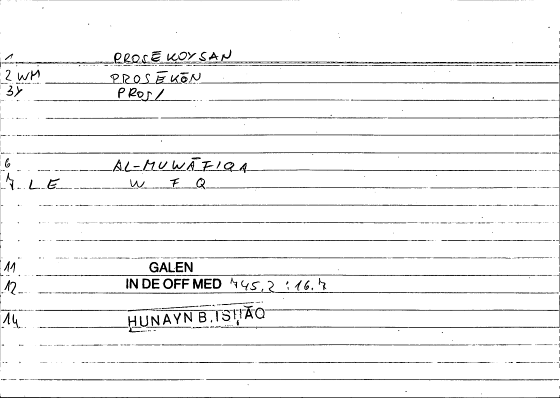 1 PROSĒKOYSAN
2 WM PROSĒKŌN
3Y PROS/
6 AL-MUWĀFIQA
7 LE W F Q
11 GALEN
12 IN DE OFF MED 745.2 : 16.7
14 HUNAYN B. ISḤĀQ